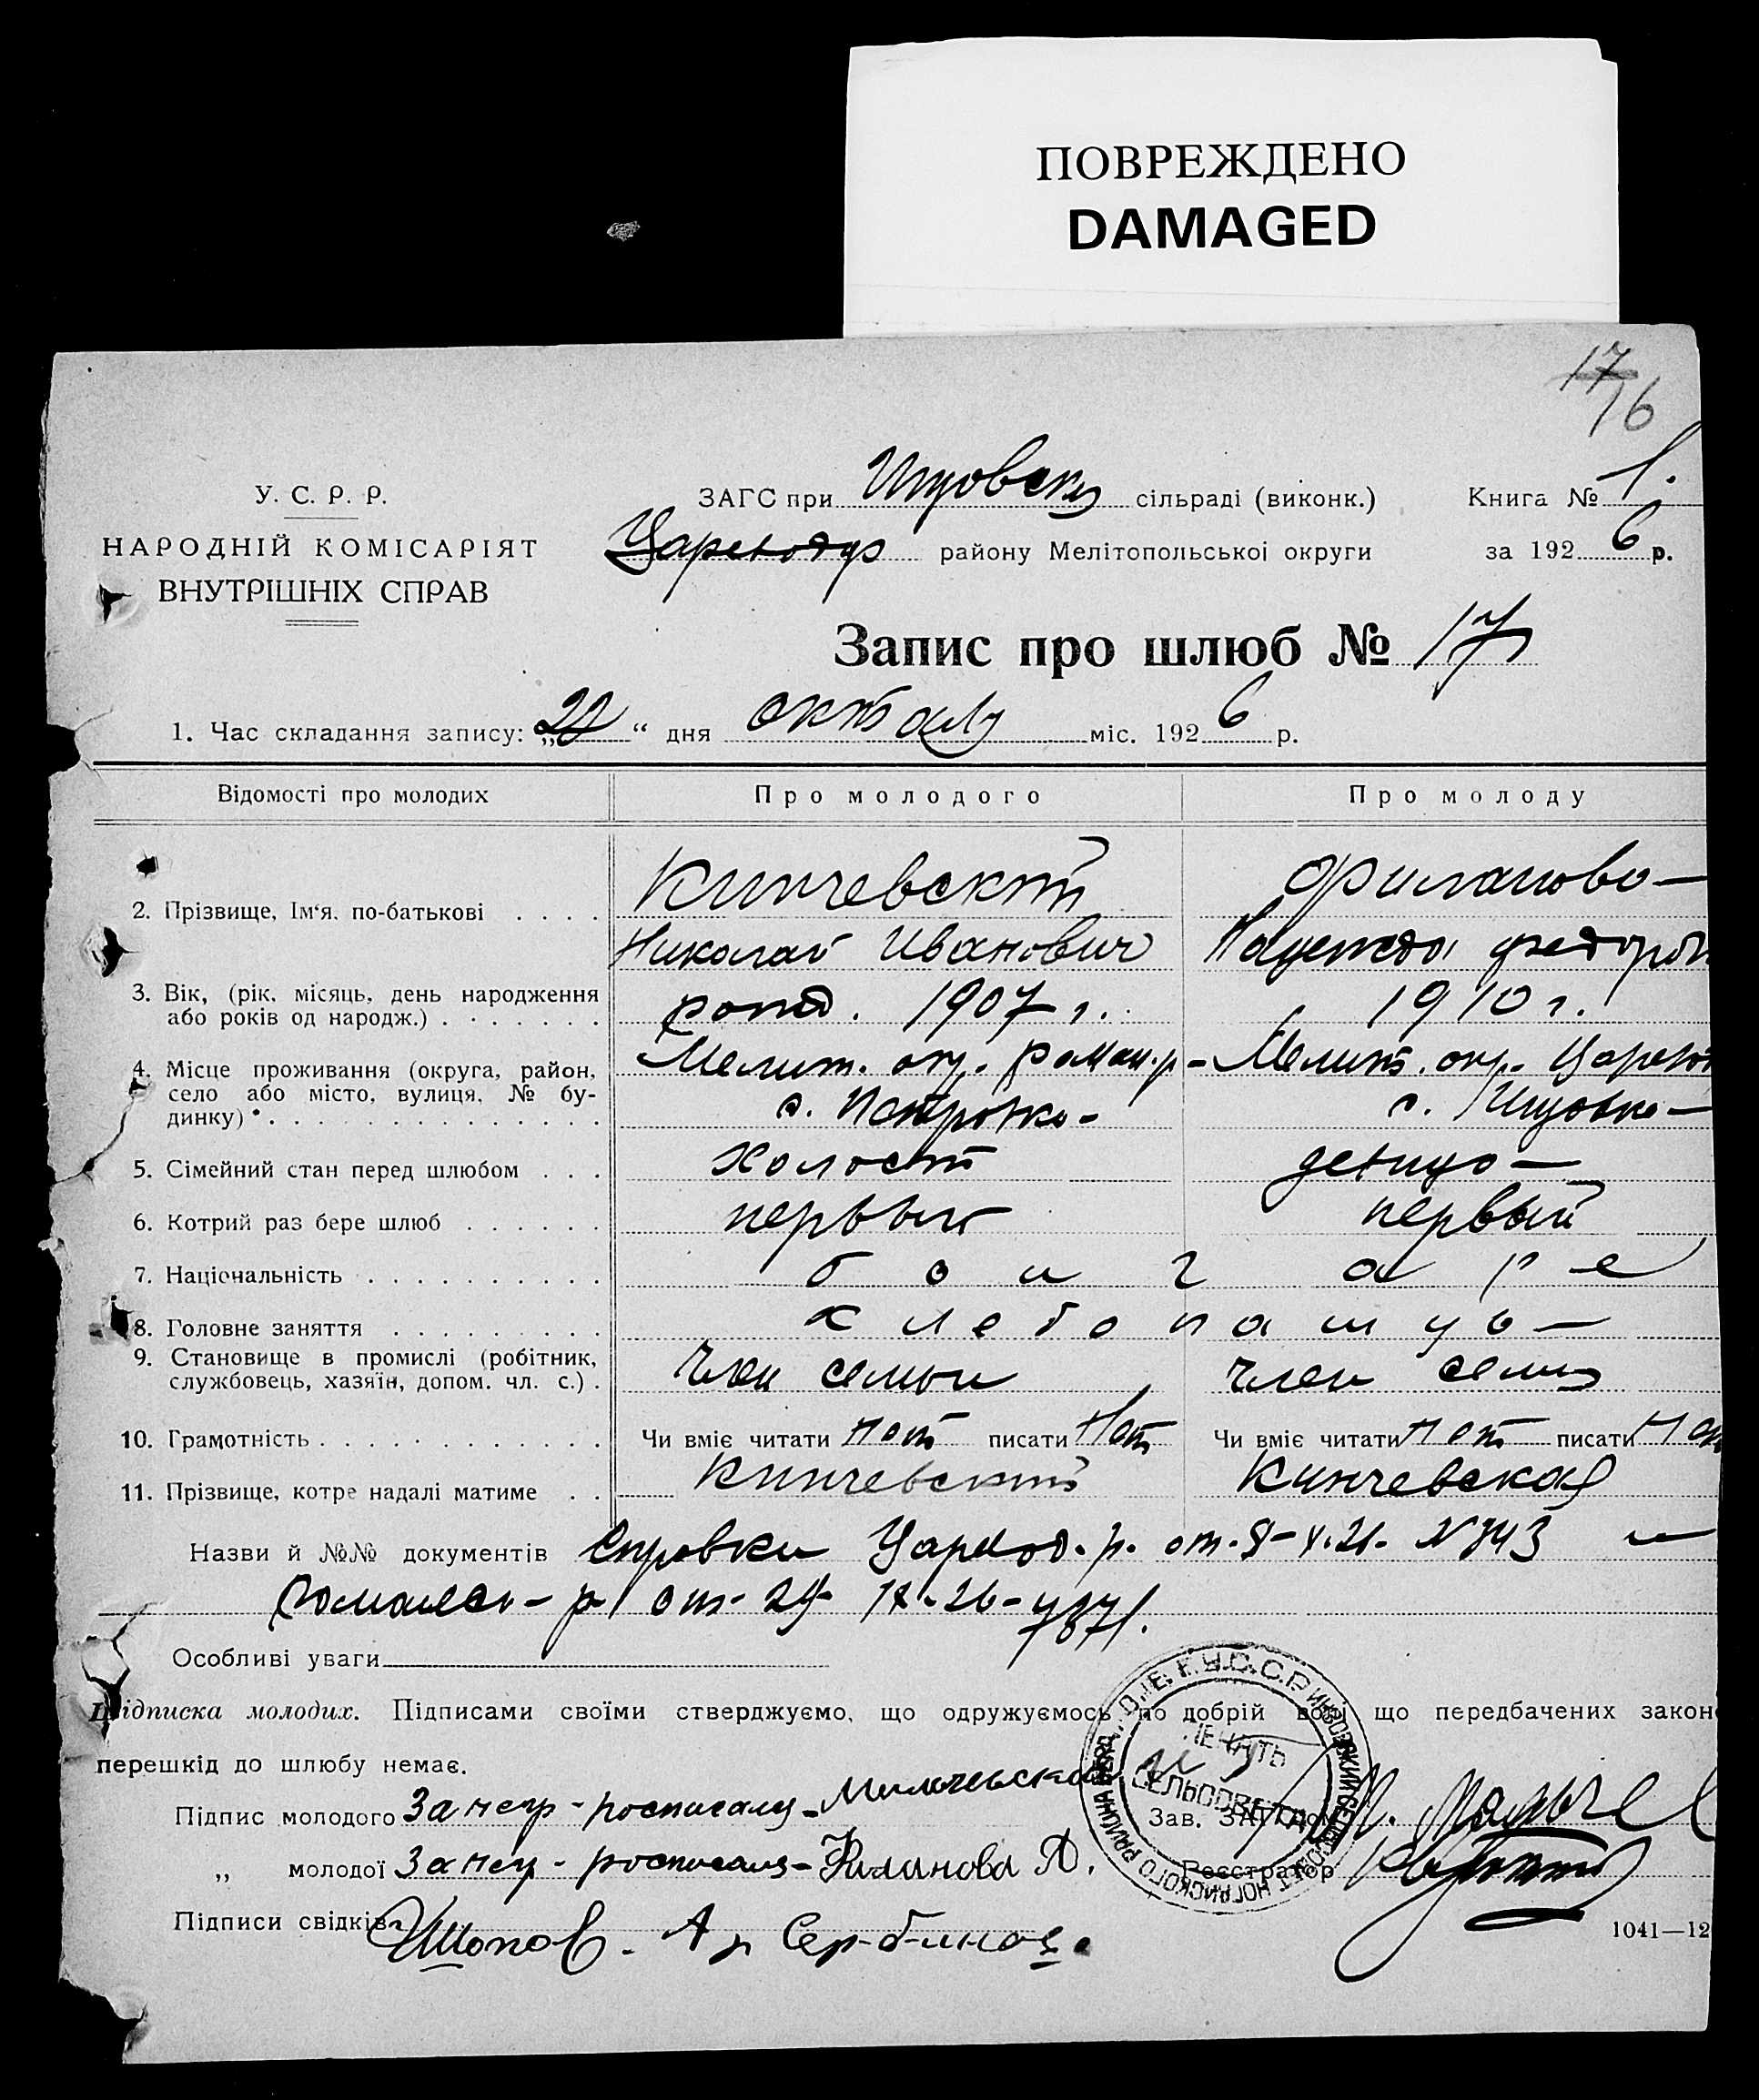 ПОВРЕЖДЕНО
DAMAGED
17
16
У. С. Р. Р.
НАРОДНІЙ КОМІСАРІЯТ
ВНУТРІШНІХ СПРАВ
ЗАГС при сільраді (виконк.) Книга № 1.
району Мелітопольської округи за 1926 р.
Запис про шлюб № 17
1. Час складання запису: „ “ дня міс. 1926 р.
Відомості про молодих Про молодого Про молоду
2. Прізвище, Ім‘я, по-батькові . . . . Кинчевский Филанова
Николай Иванович Надежда Федоров
3. Вік, (рік, місяць, день народження
або років од народж.) . . . . . . . рожд. 1907 г. 1910 г.
4. Місце проживання (округа, район,
село або місто, вулиця, № бу-
динку) * . . . . . . . . . . . . . . Мелит. окр. Роман. р- Мелит. окр. Царевод
с. Петровка- с. Инзовка-
5. Сімейний стан перед шлюбом . . . холост девица
6. Котрий раз бере шлюб . . . . . . первый первый
7. Національність . . . . . . . . . . болгаре
8. Головне заняття . . . . . . . . . хлебопашцы
9. Становище в промислі (робітник,
службовець, хазяїн, допом. чл. с.) . член семьи член семьи
10. Грамотність . . . . . . . . . . . . Чи вміє читати Нет писати Нет Чи вміє читати Нет писати Нет
11. Прізвище, котре надалі матиме . . Кинчевский Кинчевская
Назви й №№ документів Справки Царевод. р. от. №743 и
р от-
Особливі уваги
Підписка молодих. Підписами своїми стверджуємо, що одружуємось по добрій волі що передбачених закон
перешкід до шлюбу немає.
Підпис молодого За негр- росписался-
Зав. ЗАГСом
„ молодої За негр- росписался- Филанова Д.
Реєстратор
Підписи свідків Шопов. Сербинов
1041—12
У.С.С.Р. ИНЗОВСКИЙ СЕЛЬСОВЕТ НОГАЙСКОГО РАЙОНА
СЕЛЬСОВЕТА